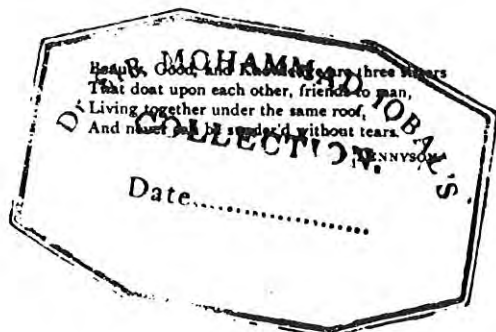 Beauty, Good, and Knowledge are three sisters
That doat upon each other, friends to man,
Living together under the same roof,
And never can be sunder'd without tears.
TENNYSON.
DR. SIR MOHAMMAD IQBAL'S
COLLECTION.
Date....................